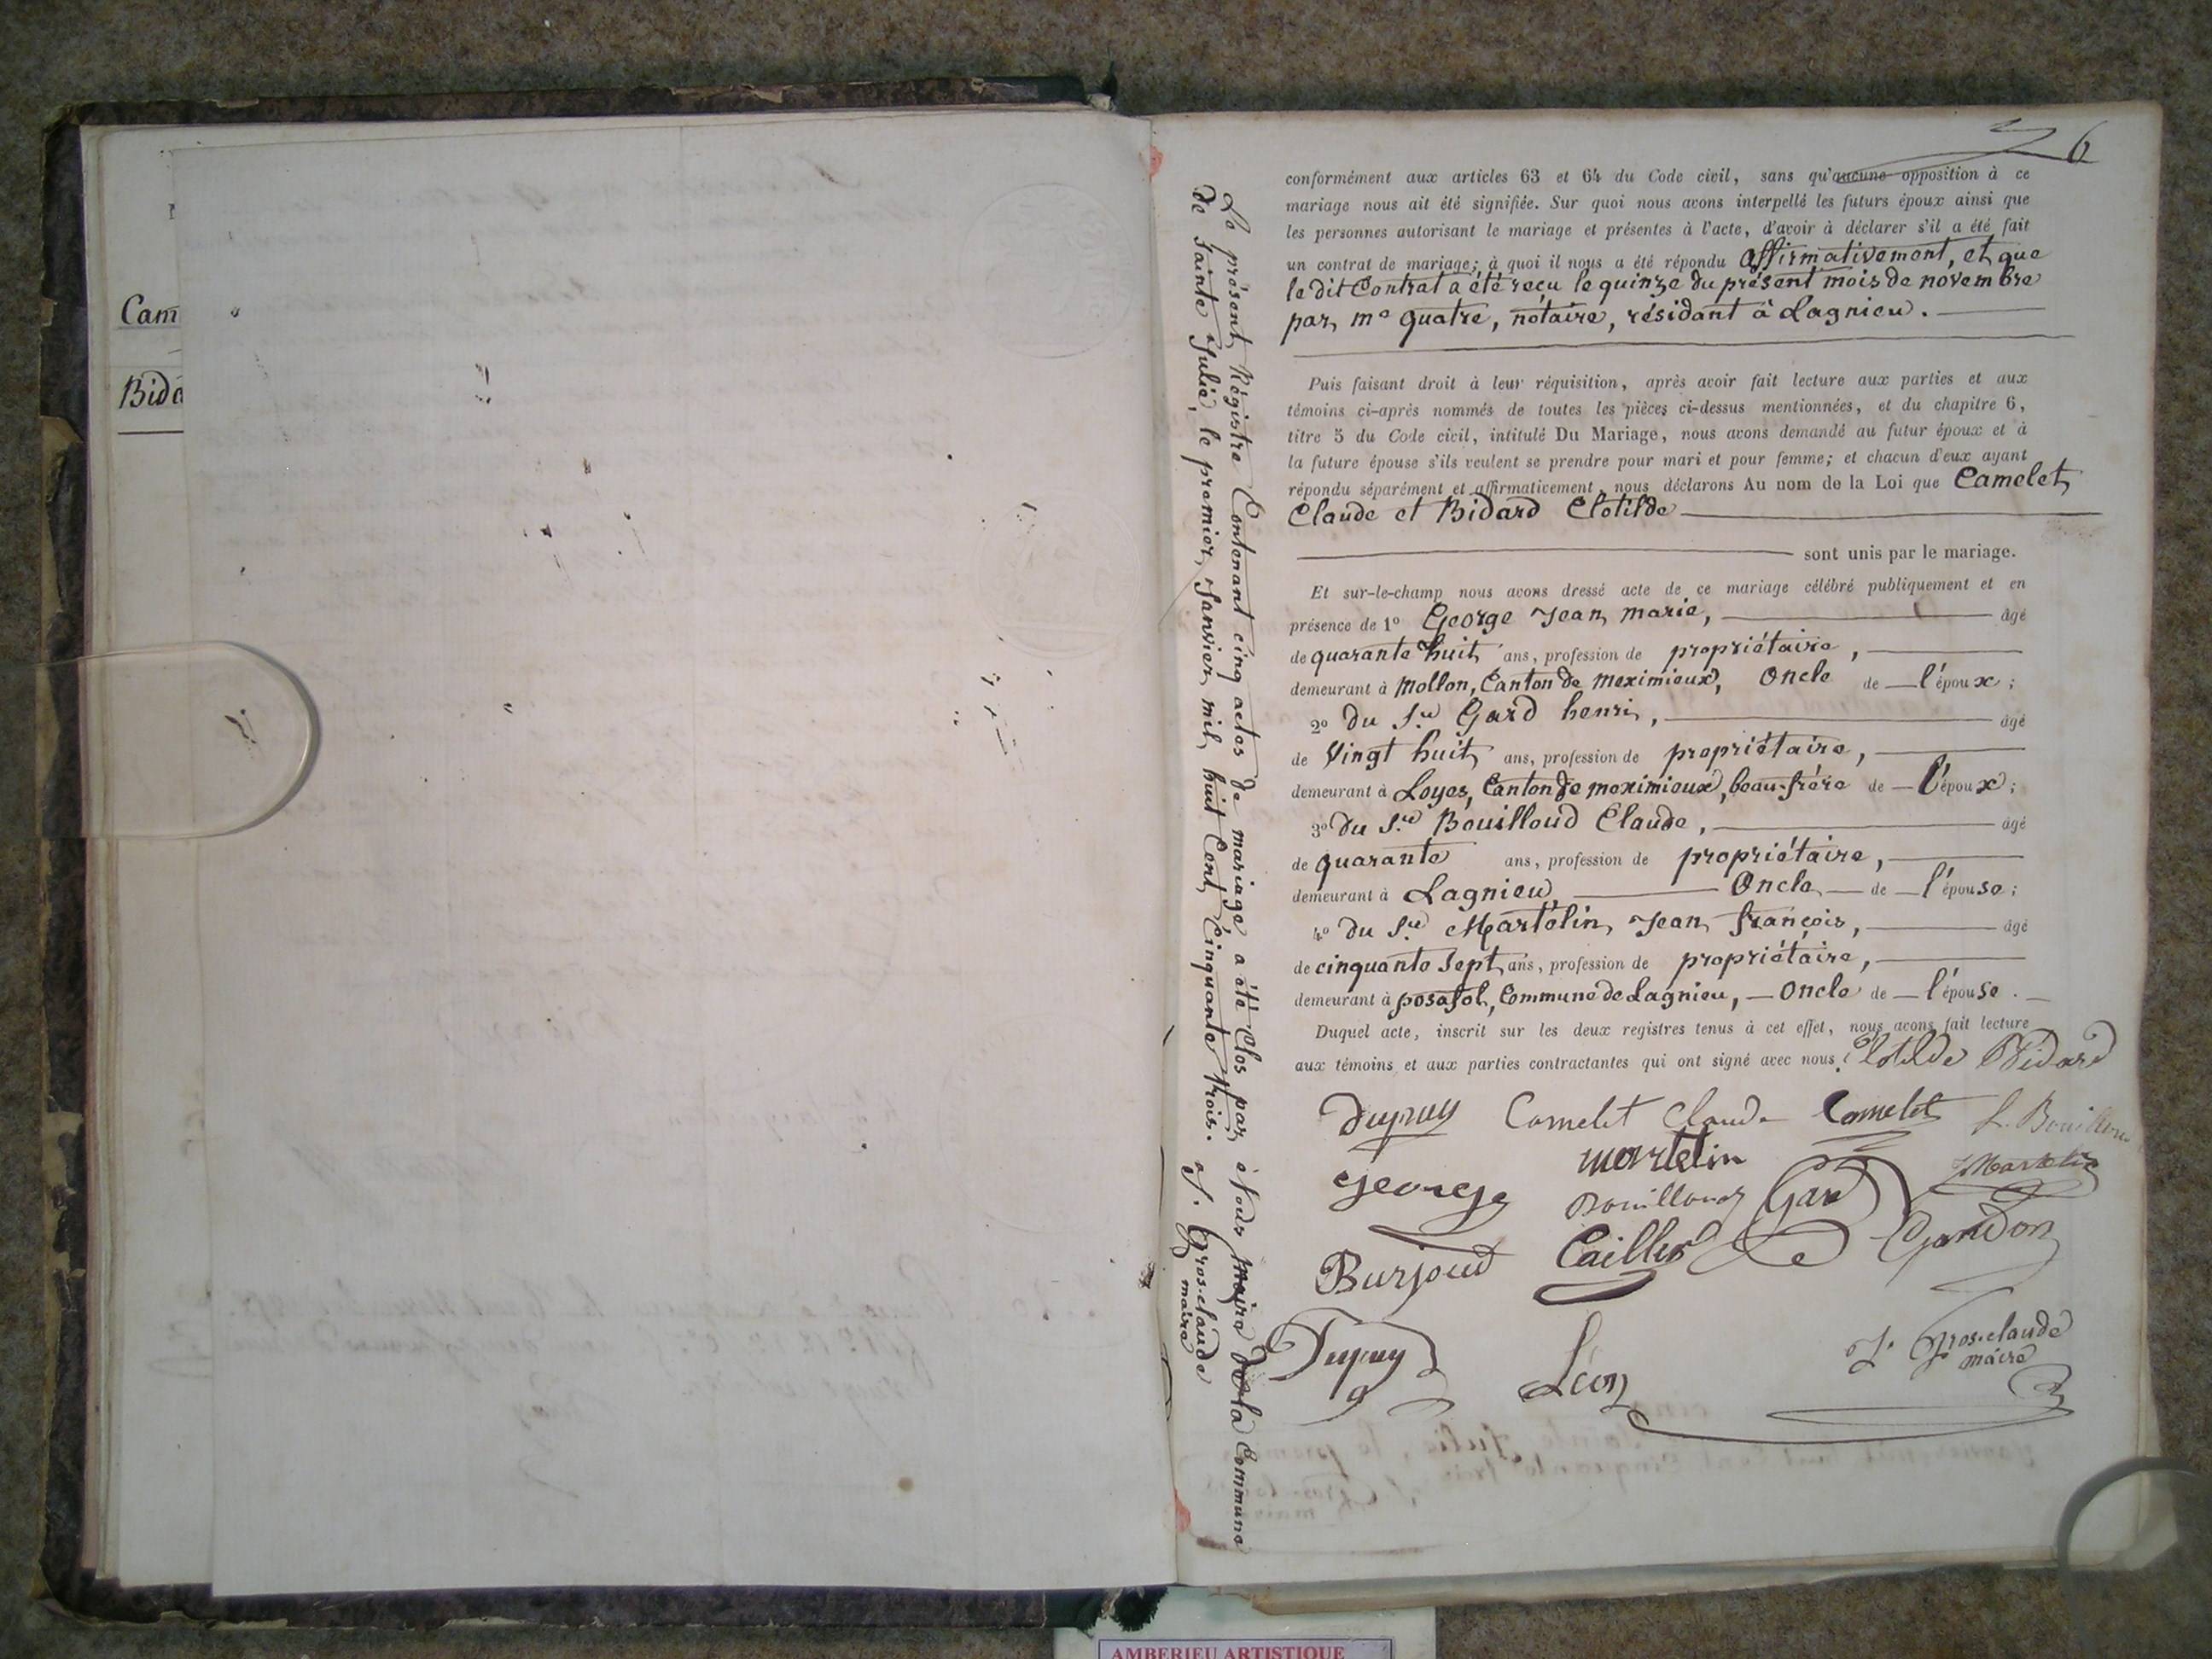 Cam
Bida
6
conformément aux articles 63 et 64 du Code civil, sans qu'aucune opposition à ce
mariage nous ait été signifiée. Sur quoi nous avons interpellé les futurs époux ainsi que
les personnes autorisant le mariage et présentes à l'acte, d'avoir à déclarer s'il a été fait
un contrat de mariage; à quoi il nous a été répondu affirmativement, et que
le dit Contrat a été reçu le quinze du présent mois de novembre
par me quatre, notaire, résidant à Lagnieu.
Puis faisant droit à leur réquisition, après avoir fait lecture aux parties et aux
témoins ci-après nommés de toutes les pièces ci-dessus mentionnées, et du chapitre 6,
titre 5 du Code civil, intitulé Du Mariage, nous avons demandé au futur époux et à
la future épouse s'ils veulent se prendre pour mari et pour femme; et chacun d'eux ayant
répondu séparément et affirmativement, nous déclarons Au nom de la Loi que Camelet
Claude et Bidard Clotilde
sont unis par le mariage.
Et sur-le-champ nous avons dressé acte de ce mariage célébré publiquement et en
présence de 1o George Jean marie, âgé
de quarante huit ans, profession de propriétaire,
demeurant à Mollon, Canton de meximieux, Oncle de l'époux;
2o du Sr Gard henri, âgé
de Vingt huit ans, profession de propriétaire,
demeurant à Loyes, Canton de meximieux, beau-frère de l'époux;
3o du Sr Bouilloud Claude, âgé
de quarante ans, profession de propriétaire,
demeurant à Lagnieu, Oncle de l'épouse;
4o du Sr Martelin Jean françois, âgé
de cinquante Sept ans, profession de propriétaire,
demeurant à posafol, Commune de Lagnieu, Oncle de l'épouse.
Duquel acte, inscrit sur les deux registres tenus à cet effet, nous avons fait lecture
aux témoins et aux parties contractantes qui ont signé avec nous. Clotilde Bidard
Dupuy Camelet Claude Camelet
martelin Martelin
George Bouilloud Gard
Burjoud Caillet Gandon
Dupuy Léon
J. Gros-claude
maire
Le présent Régistre Contenant cinq actes de mariage a été Clos par Nous Maire de la Commune
de Sainte Julie, le premier, Janvier mil huit Cent Cinquante trois. J. Gros-claude
maire
AMBERIEU ARTISTIQUE